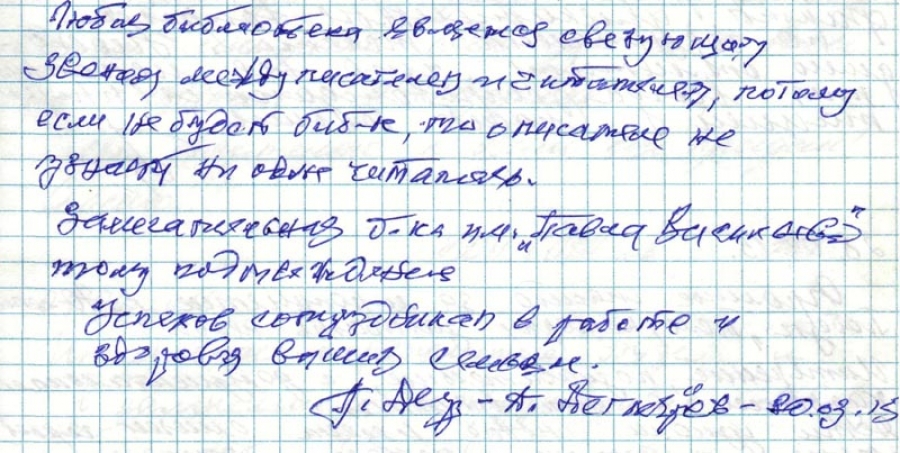 Любая библиотека является связующим
звеном между писателем и читателем, потому
если не будет биб-к, то о писателе не
узнает ни один читатель.
Замечательная б-ка им. "Павла Васильева"
тому подтверждение
Успехов сотрудникам в работе и
здоровья вашим семьям.
20.03.15